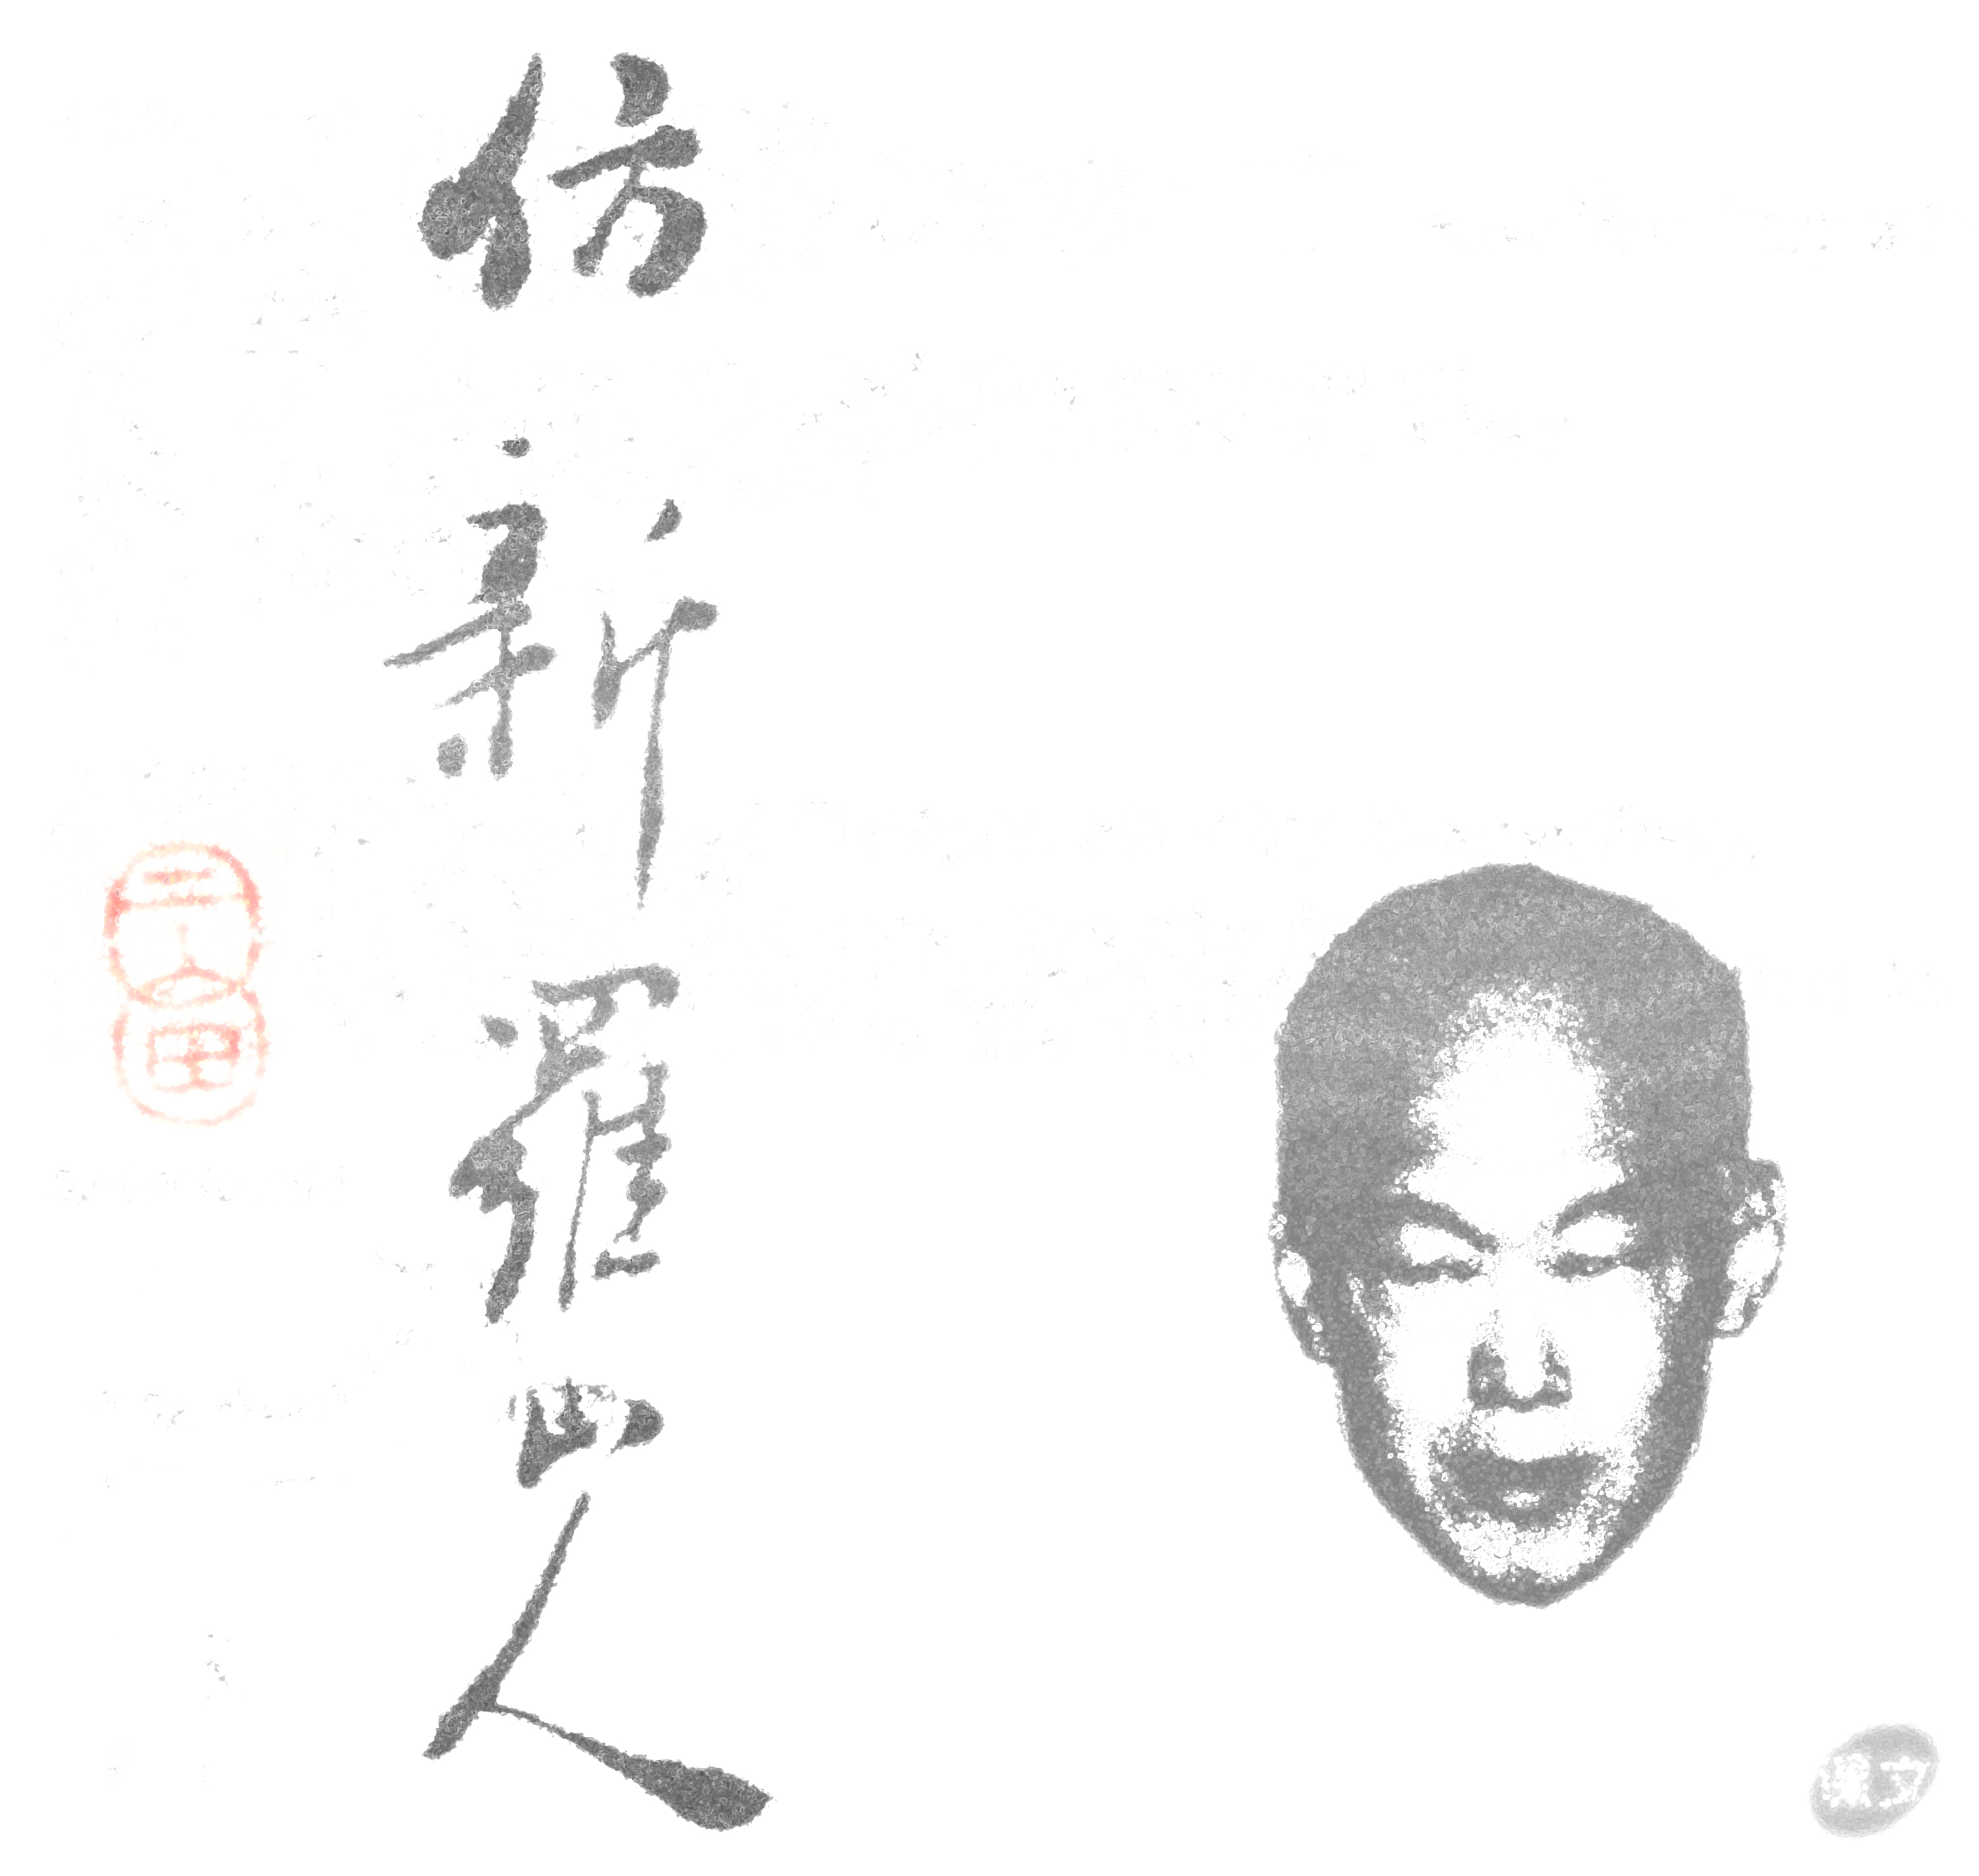 仿新羅山人